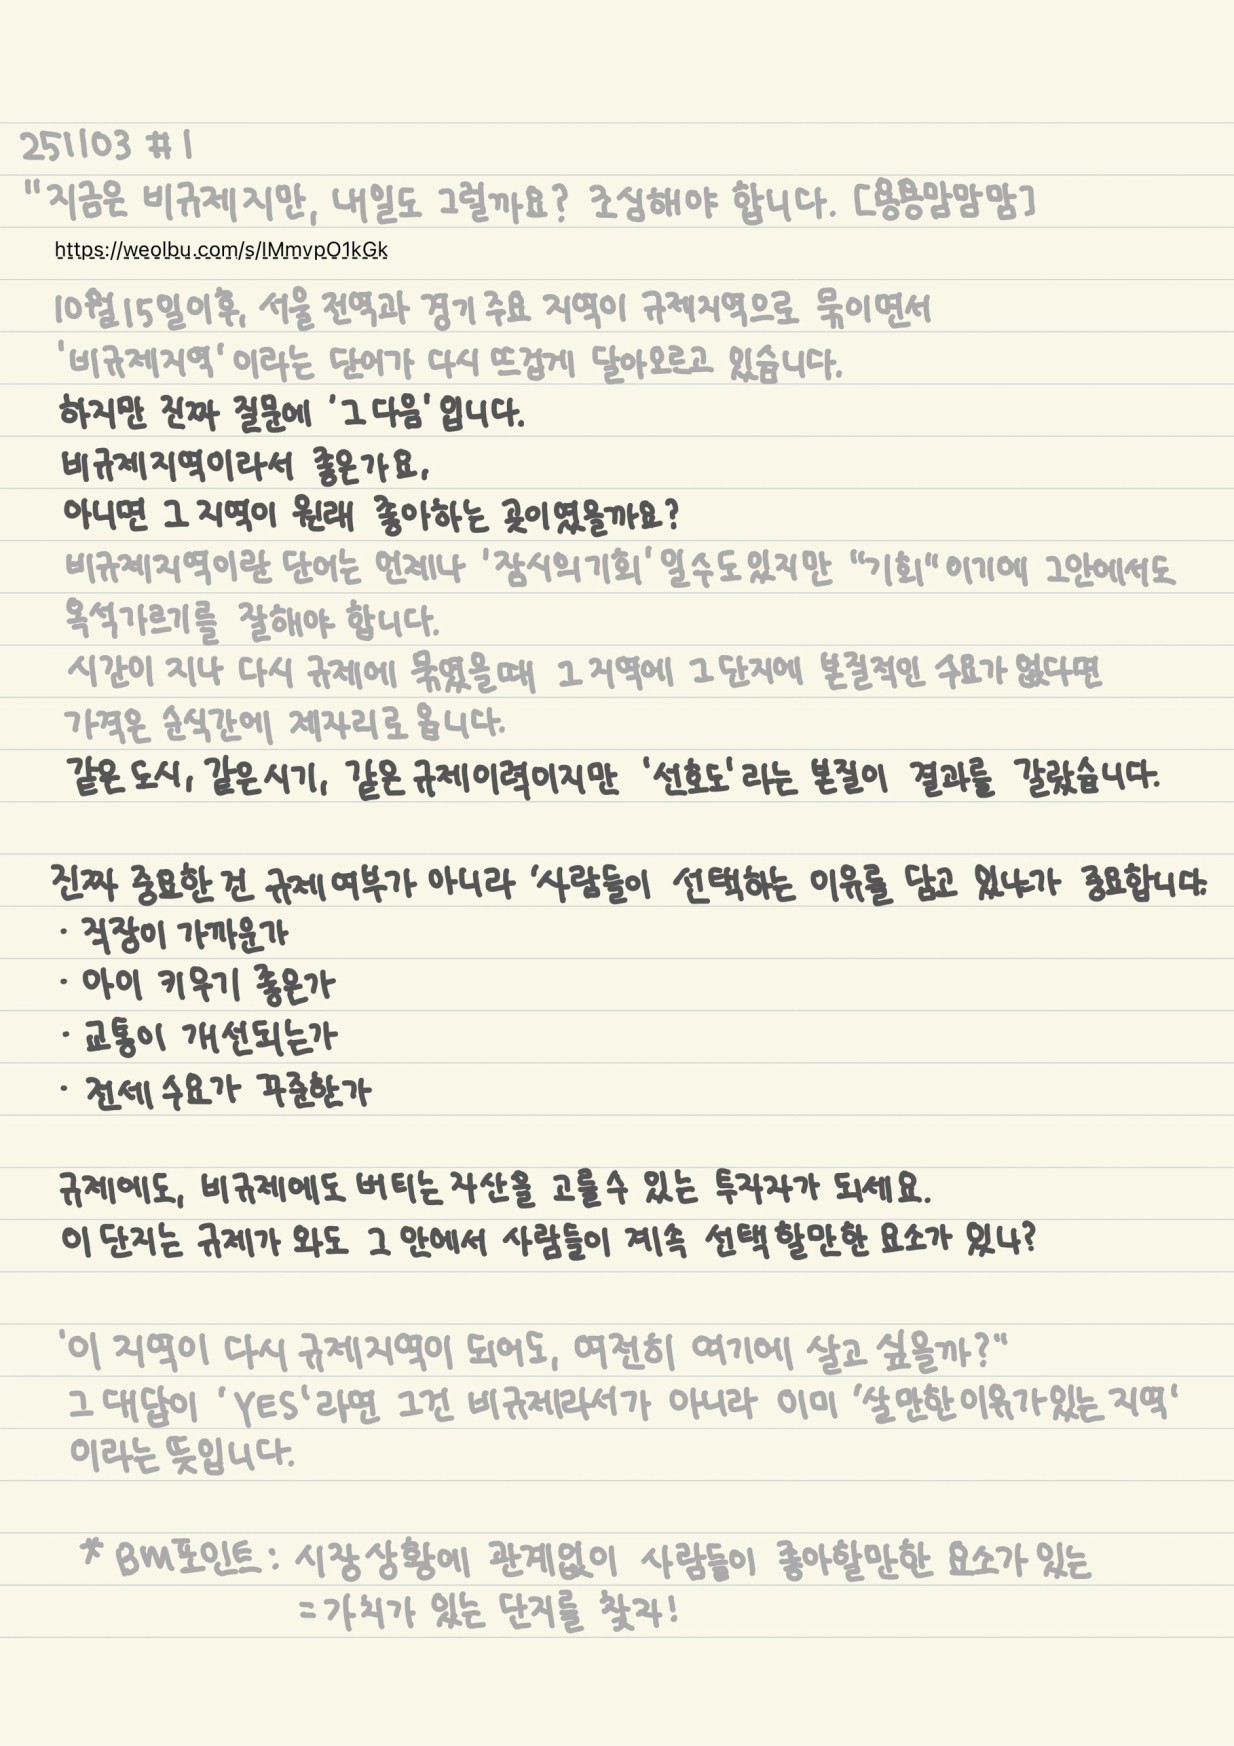 251103 #1
"지금은 비규제지만, 내일도 그럴까요? 조심해야 합니다. [용용맘맘맘]
https://weolbu.com/s/IMmvpO1kGk
10월 15일이후, 서울 전역과 경기 주요 지역이 규제지역으로 묶이면서
'비규제지역'이라는 단어가 다시 뜨겁게 달아오르고 있습니다.
하지만 진짜 질문에 '그 다음' 입니다.
비규제지역이라서 좋은가요,
아니면 그 지역이 원래 좋아하는 곳이였을까요?
비규제지역이란 단어는 언제나 '잠시의기회' 일수도있지만 "기회"이기에 그안에서도
옥석가르기를 잘해야 합니다.
시간이 지나 다시 규제에 묶였을때 그 지역에 그 단지에 본질적인 수요가 없다면
가격은 순식간에 제자리로 옵니다.
같은 도시, 같은시기, 같은 규제이력이지만 '선호도'라는 본질이 결과를 갈랐습니다.
진짜 중요한 건 규제 여부가 아니라 '사람들이 선택하는 이유를 담고 있냐'가 중요합니다.
· 직장이 가까운가
· 아이 키우기 좋은가
· 교통이 개선되는가
· 전세 수요가 꾸준한가
규제에도, 비규제에도 버티는 자산을 고를수 있는 투자자가 되세요.
이 단지는 규제가 와도 그 안에서 사람들이 계속 선택할만한 요소가 있나?
'이 지역이 다시 규제지역이 되어도, 여전히 여기에 살고 싶을까?"
그 대답이 'YES'라면 그건 비규제라서가 아니라 이미 '살만한이유가있는 지역'
이라는 뜻입니다.
* BM포인트 : 시장상황에 관계없이 사람들이 좋아할만한 요소가 있는
= 가치가 있는 단지를 찾자!